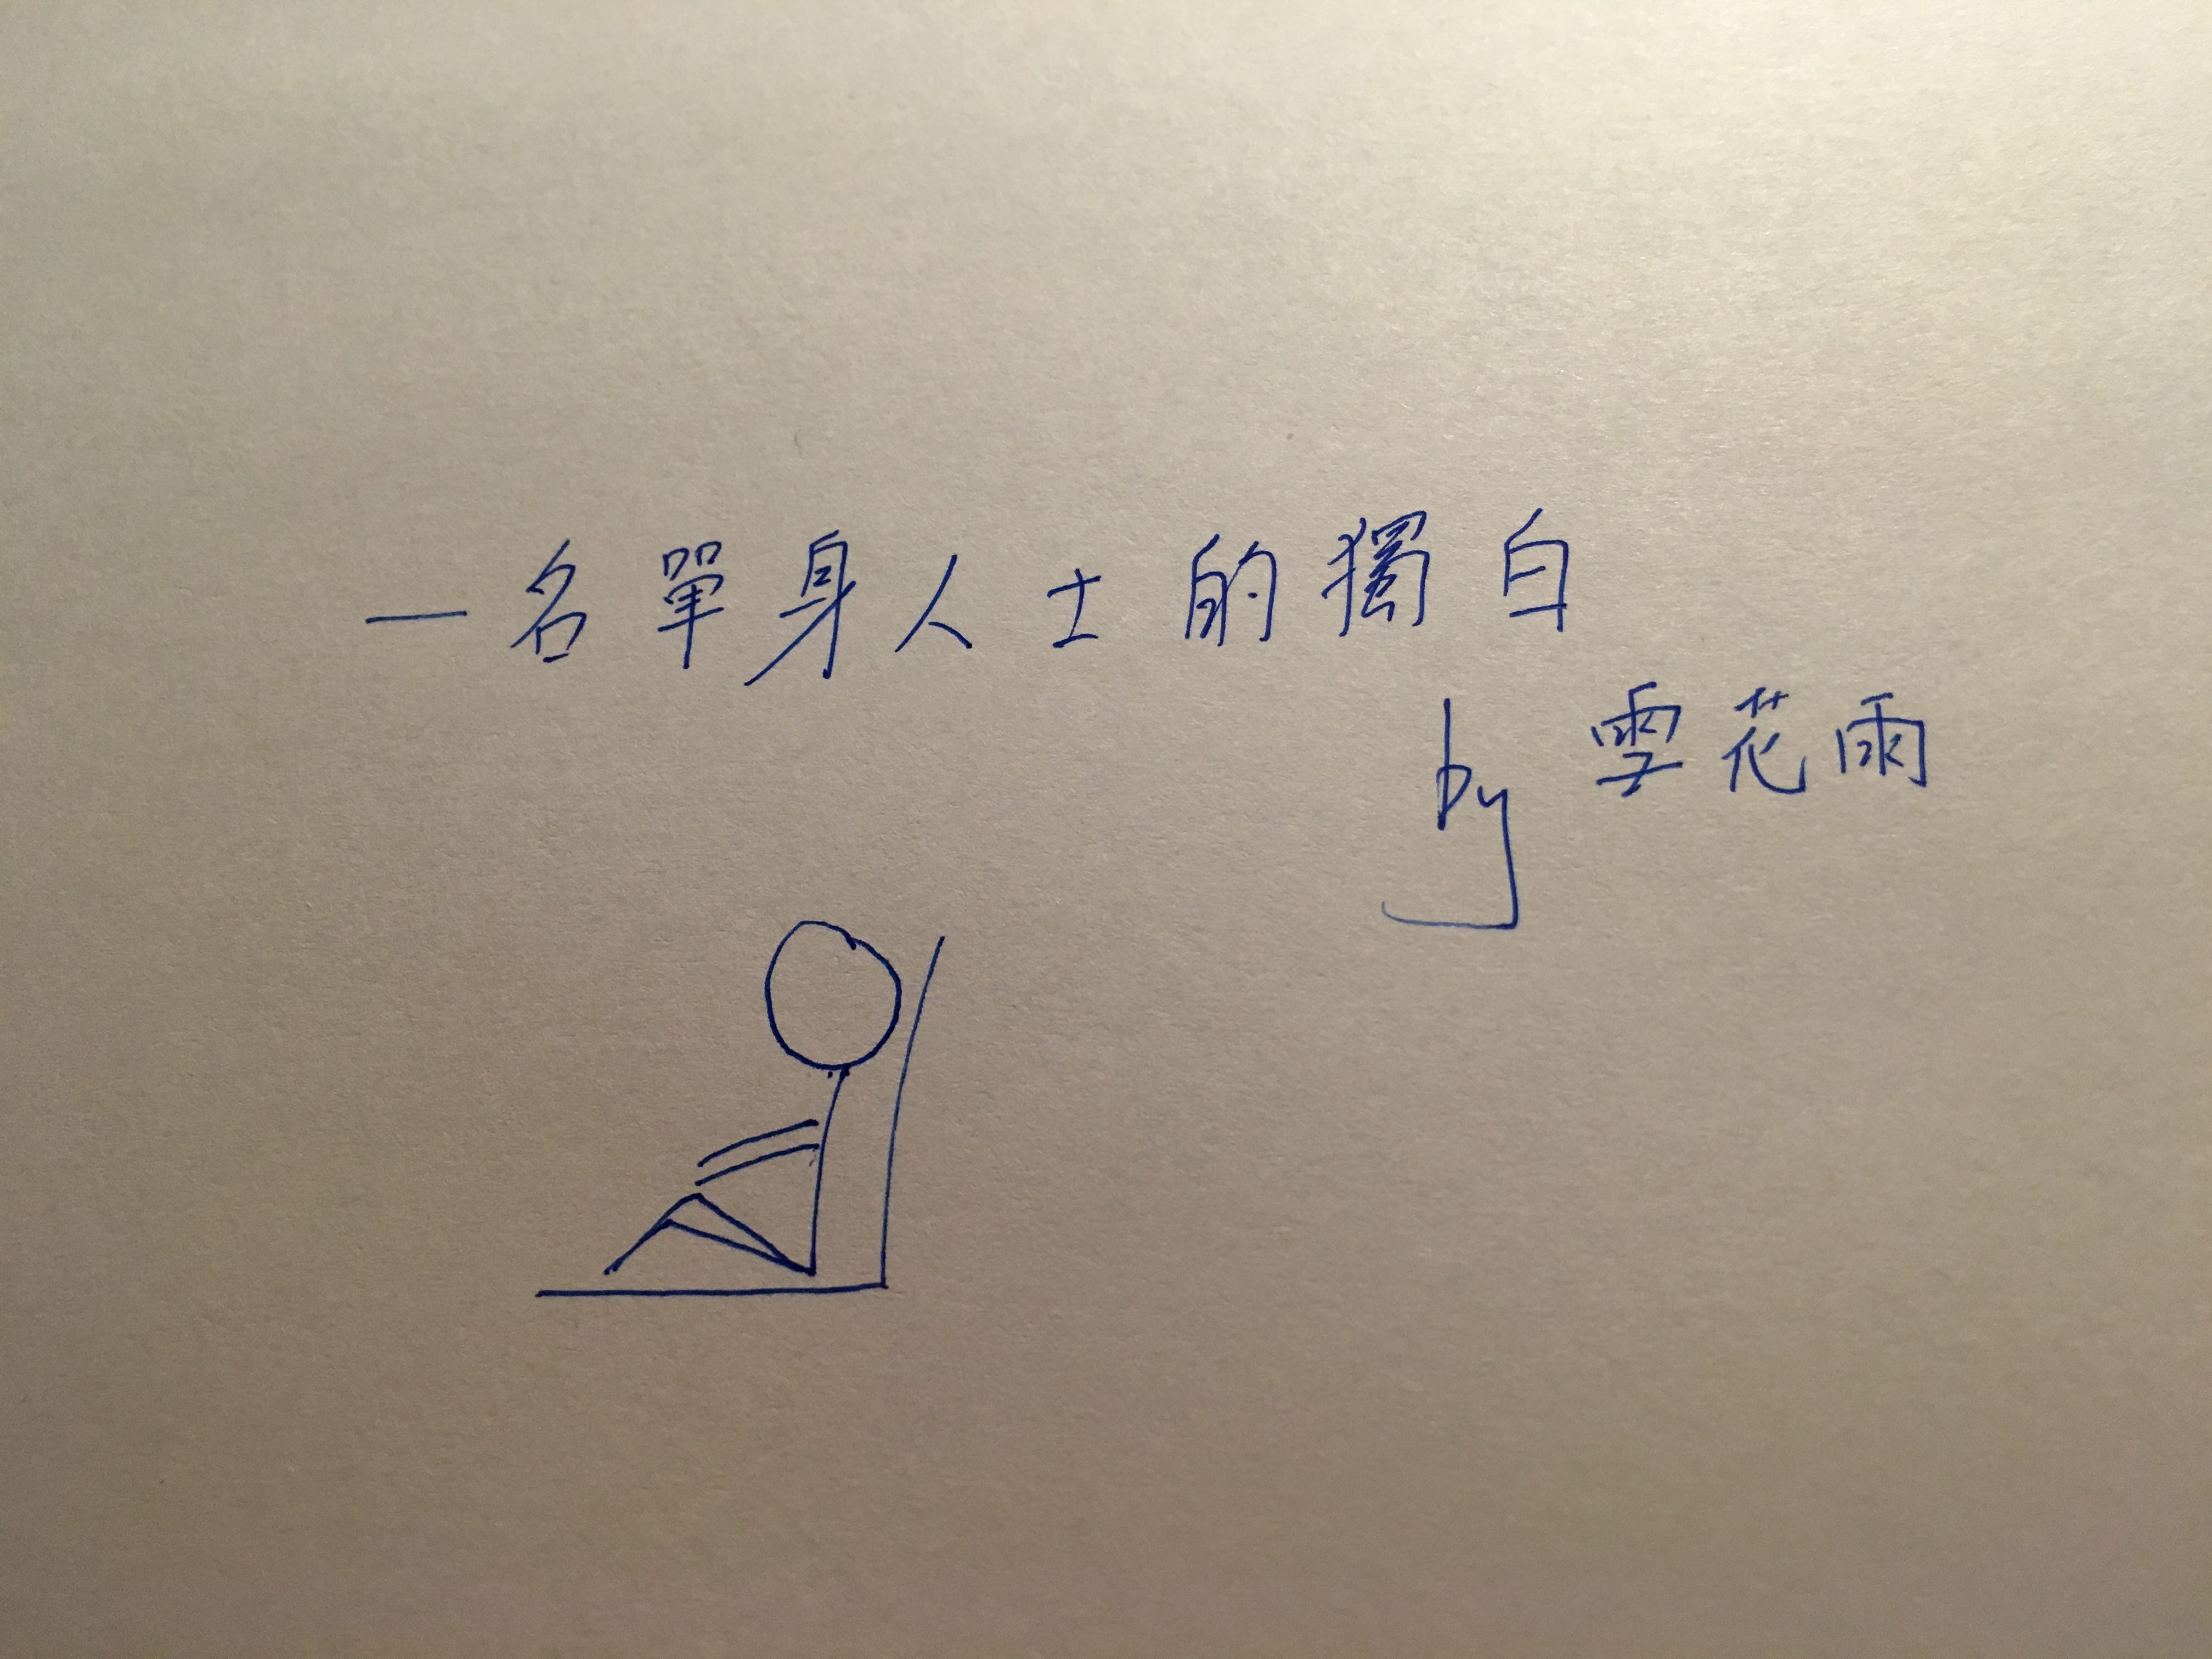 一名單身人士的獨白
by 雪花雨